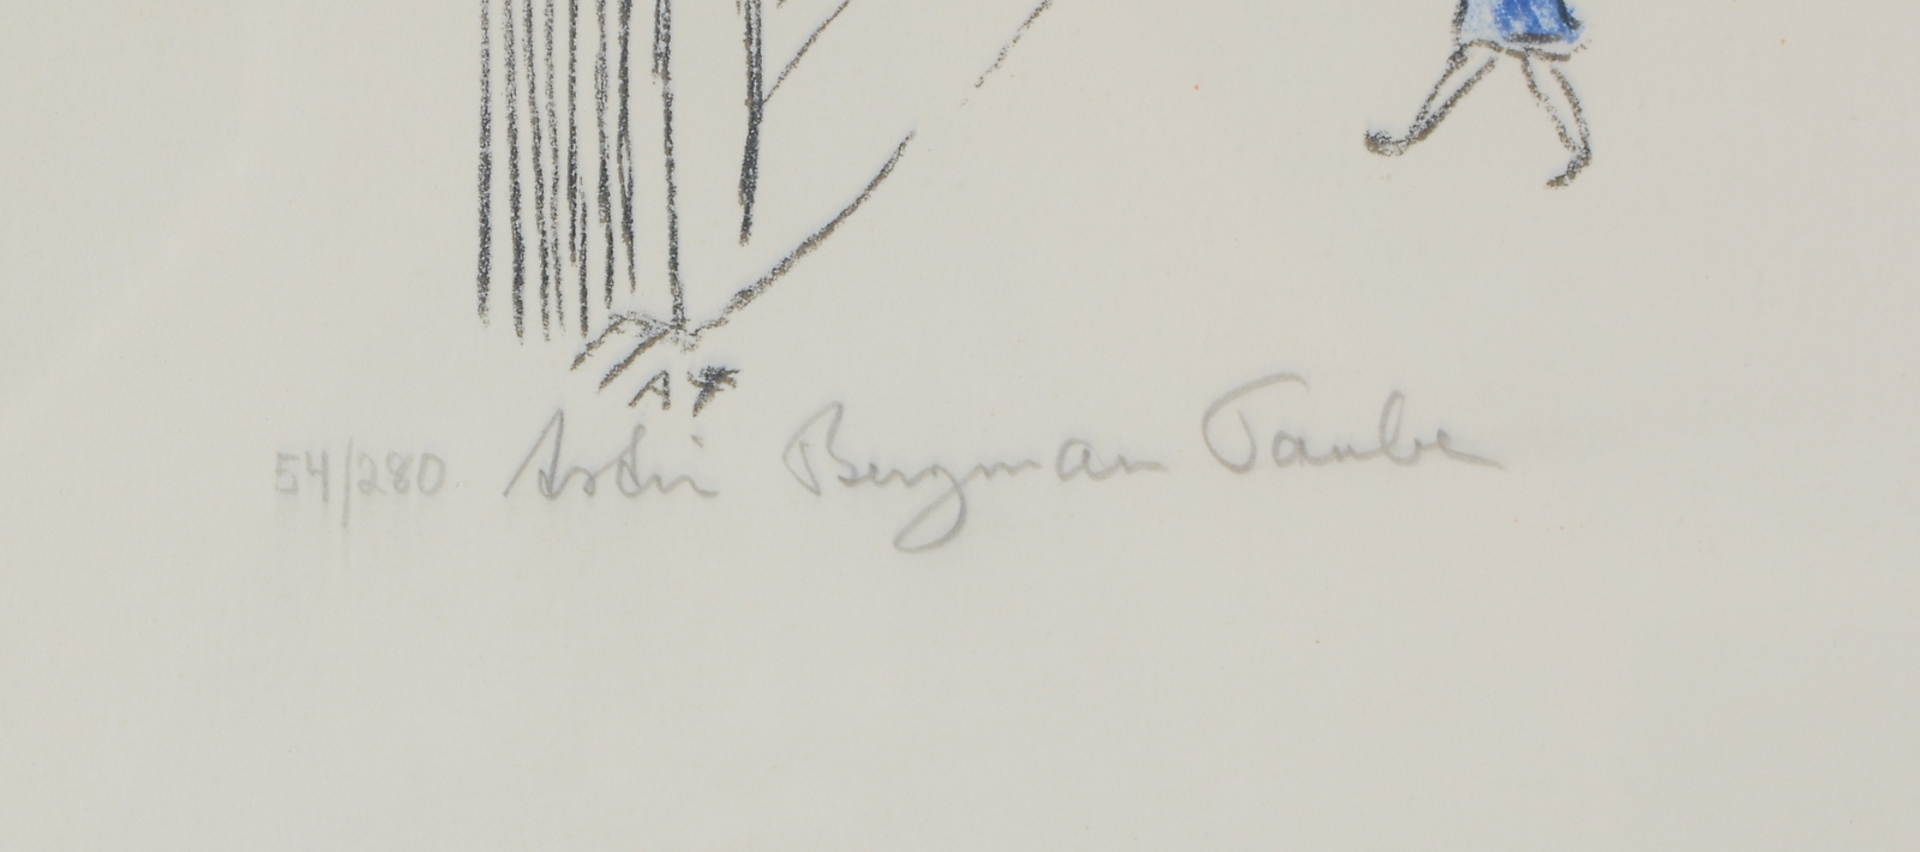 AT
54/280 Astri Bergman Taube